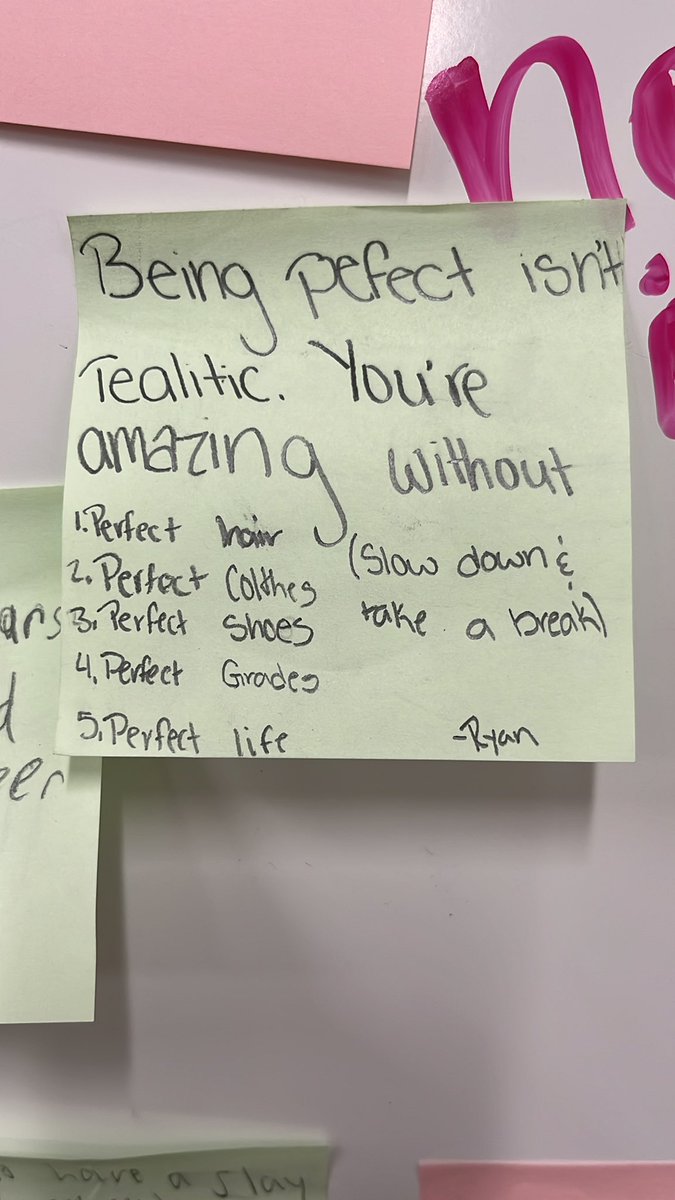 Being pefect isn't
realitic. You're
amazing without
1. Perfect hair
2. Perfect Colthes
3. Perfect shoes
4. Perfect Grades
5. Perfect life
(Slow down &
take a break)
-Ryan
ars
d
eer
have a slay